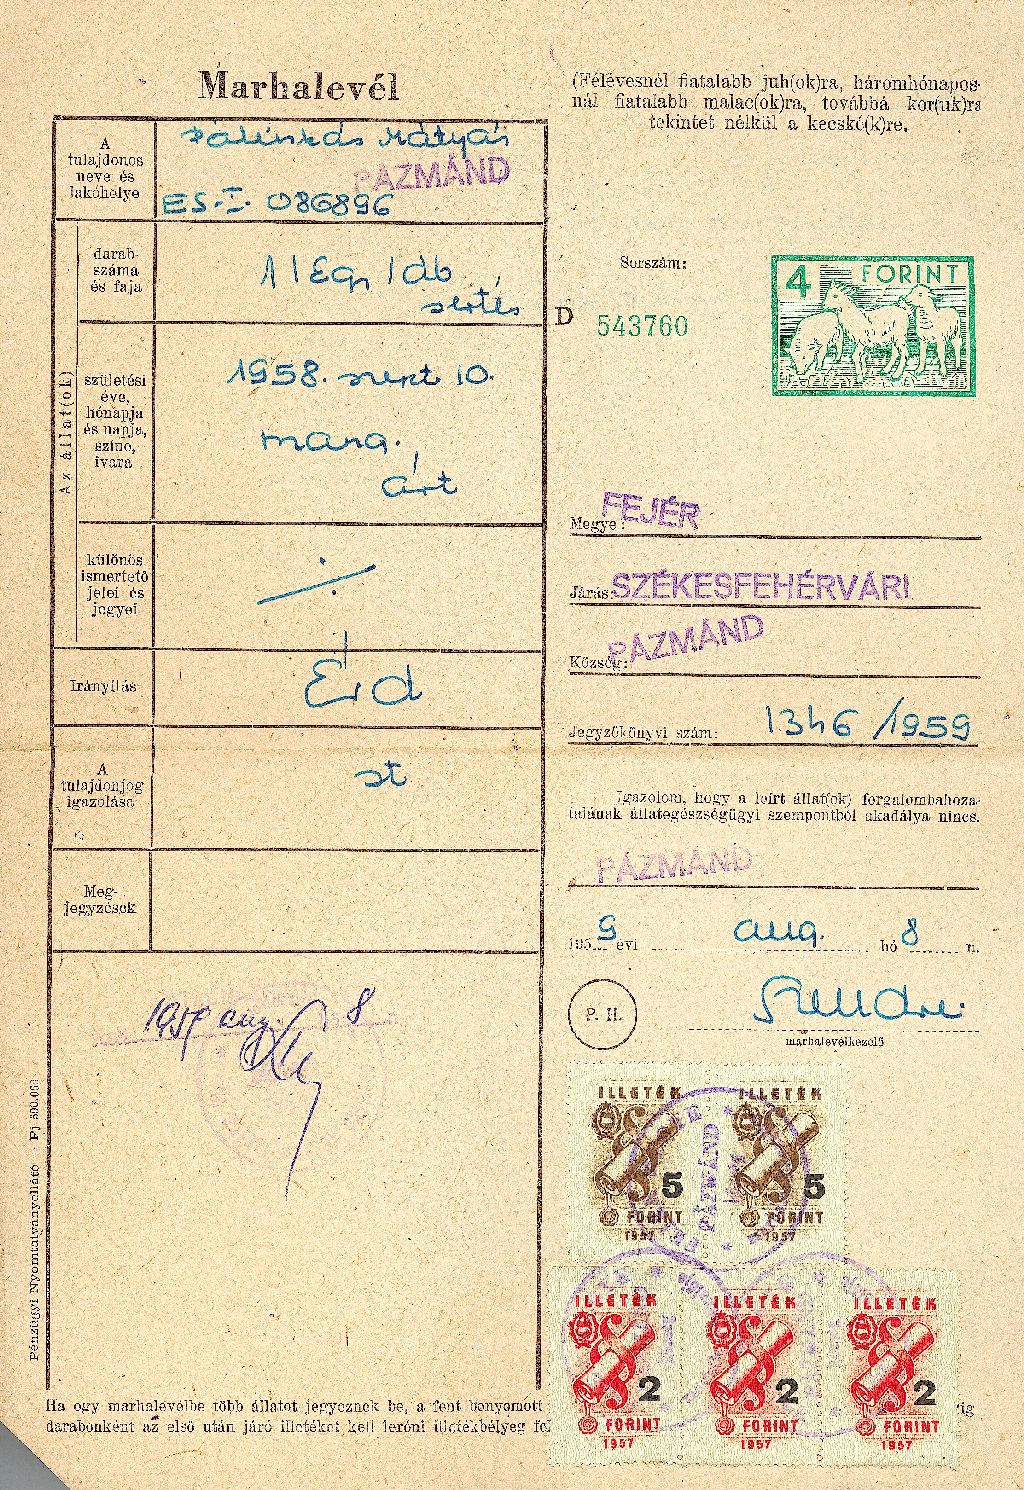 Marhalevél
(Félévesnél fiatalabb juh(ok)ra, háromhónapos-
nál fiatalabb malac(ok)ra, továbbá kor(uk)ra
tekintet nélkül a kecské(k)re.
A
tulajdonos
neve és
lakóhelye
Pálinkás Mátyás
PÁZMÁND
ES-I. 086896
Az állat(ok)
darab-
száma
és faja
1 / Egy / db
sertés
születési
éve,
hónapja
és napja,
színe,
ivara
1958. szept 10.
mang.
árt
különös
ismertető
jelei és
jegyei
Irányítás
Érd
A
tulajdonjog
igazolása
st
Meg-
jegyzések
Sorszám:
D 543760
4 FORINT
Megye: FEJÉR
Járás: SZÉKESFEHÉRVÁRI
Község: PÁZMÁND
Jegyzőkönyvi szám: 1346/1959
Igazolom, hogy a leírt állat(ok) forgalombahoza-
talának állategészségügyi szempontból akadálya nincs.
PÁZMÁND
1959 évi aug. hó 8 n.
P. H.
marhalevélkezelő
1959 aug. 8
ILLETÉK ILLETÉK
5 5
FORINT FORINT
1957 1957
PÁZMÁND
ILLETÉK ILLETÉK ILLETÉK
2 2 2
FORINT FORINT FORINT
1957 1957 1957
Ha egy marhalevélbe több állatot jegyeznek be, a fent benyomott
darabonként az első után járó illetéket kell leróni illetékbélyeg fel
Pénzügyi Nyomtatványellátó